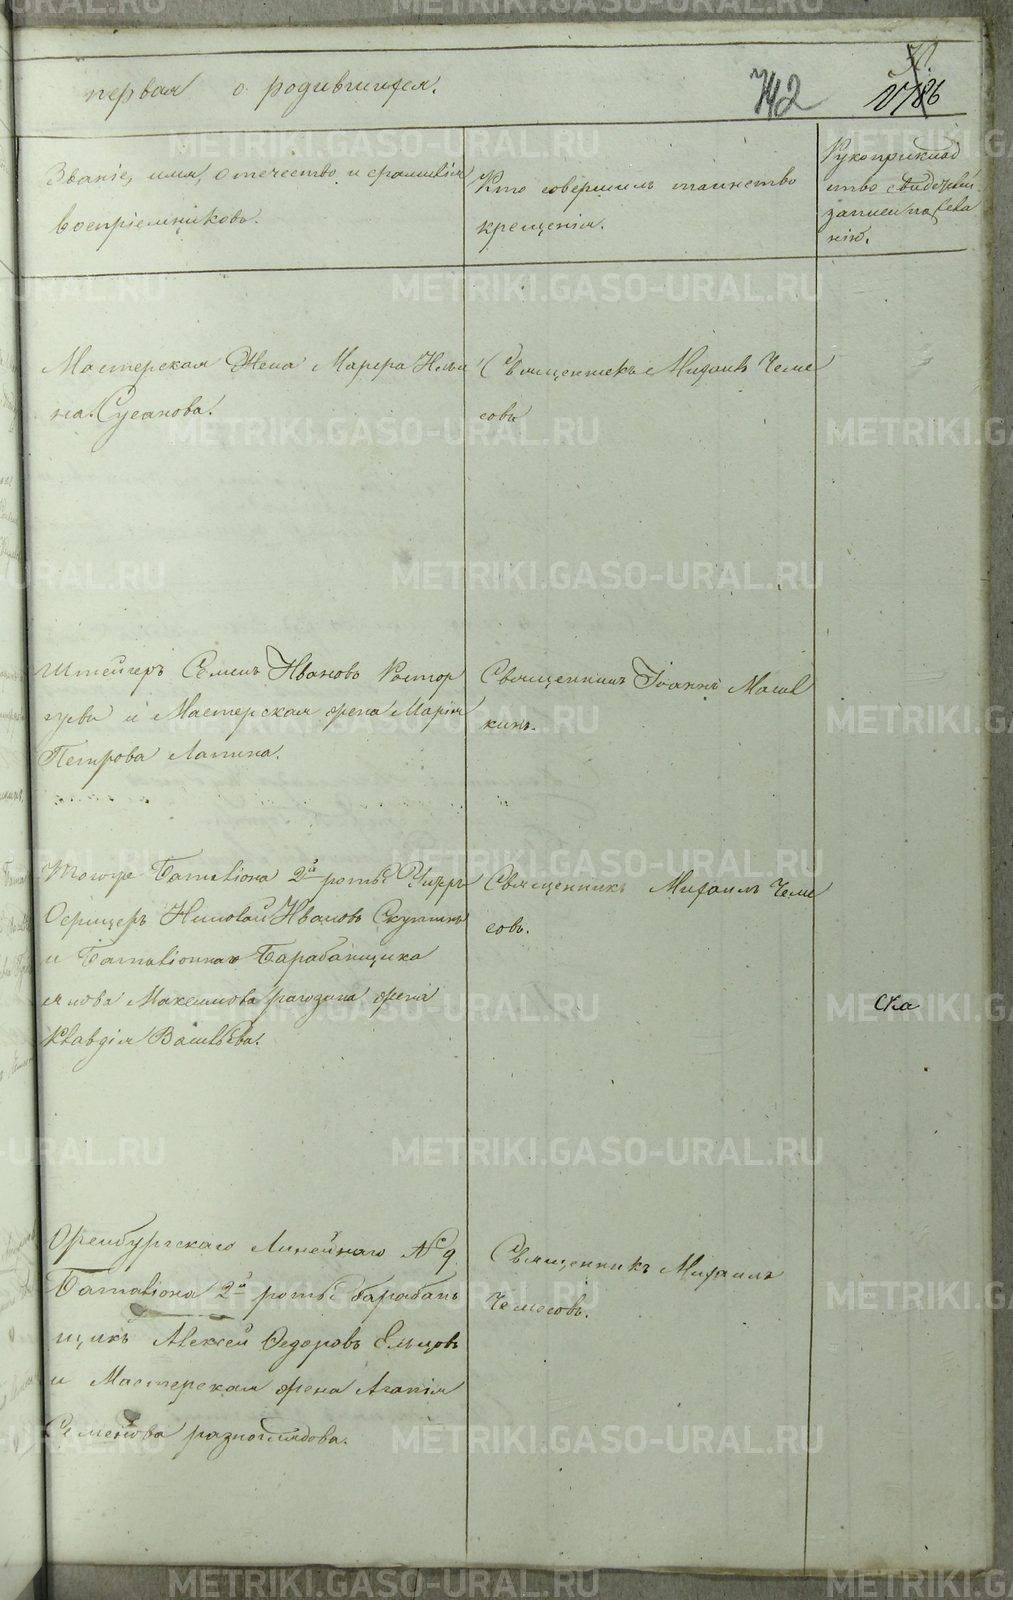 первая о родившихся.
742
Званіе, имя, отечество и фамилія
воспріемниковъ.
Кто совершилъ таинство
крещенія.
Рукоприклад
ство свидетелей
записи по жела
нію.
Мастерская Жена Марфа Ильи
на Сусанова.
Священникъ Михаилъ Чеме
совъ
Штейгеръ Семенъ Ивановъ Растор
гуевъ и Мастерская жена Марія
Петрова Лапина.
Священникъ Іоаннъ Машь
кинъ.
Тогоже Баталіона 2й роты Унтеръ
Офицеръ Николай Ивановъ Скутинъ
и Баталіоннаго Барабанщика
Максимова жена
Клавдія Васильева.
Священникъ Михаилъ Чеме
совъ.
Оренбургскаго Линейнаго № 9
Баталіона 2й роты барабан
щикъ Алексей Федоровъ Ельцовъ
и Мастерская жена Агапія
Семенова разноглядова.
Священникъ Михаилъ
Чемесовъ.
METRIKI.GASO-URAL.RU